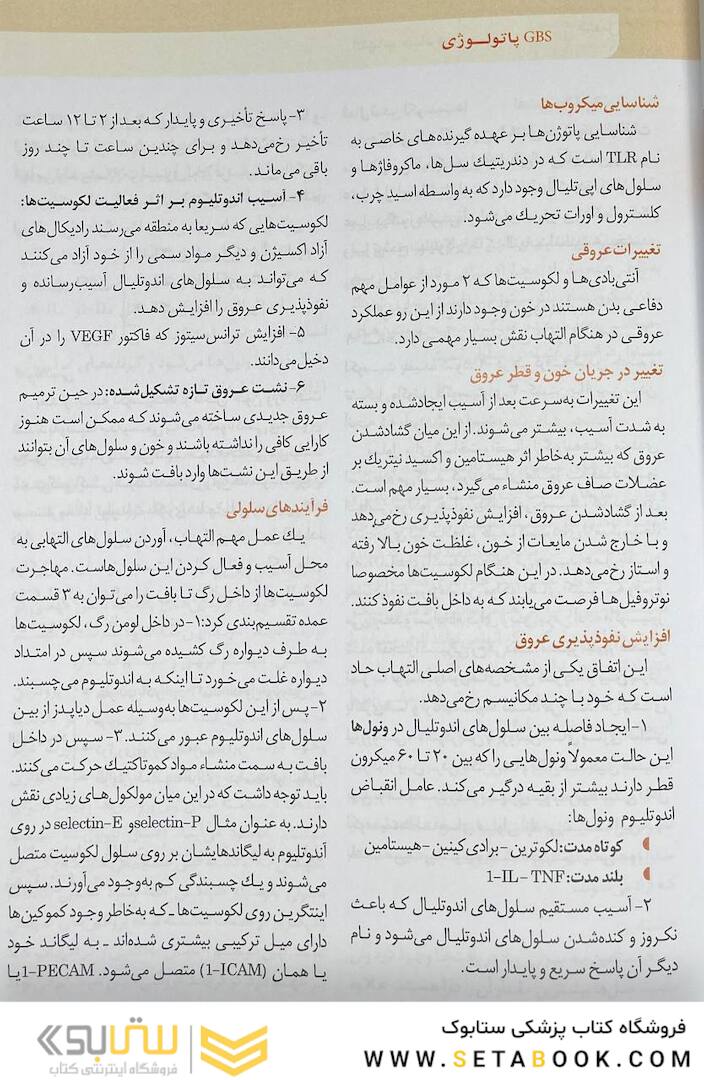 GBS پاتولـوژی
شناسایی میکروب‌ها
شناسایی پاتوژن‌ها بر عهده گیرنده‌های خاصی به
نام TLR است که در دندریتیک سل‌ها، ماکروفاژها و
سلول‌های اپی‌تلیال وجود دارد که به واسطه اسید چرب،
کلسترول و اورات تحریک می‌شود.
تغییرات عروقی
آنتی‌بادی‌ها و لکوسیت‌ها که ۲ مورد از عوامل مهم
دفاعی بدن هستند در خون وجود دارند از این رو عملکرد
عروقی در هنگام التهاب نقش بسیار مهمی دارد.
تغییر در جریان خون و قطر عروق
این تغییرات به‌سرعت بعد از آسیب ایجادشده و بسته
به شدت آسیب، بیشتر می‌شوند. از این میان گشادشدن
عروق که بیشتر به‌خاطر اثر هیستامین و اکسید نیتریک بر
عضلات صاف عروق منشاء می‌گیرد، بسیار مهم است.
بعد از گشادشدن عروق، افزایش نفوذپذیری رخ می‌دهد
و با خارج شدن مایعات از خون، غلظت خون بالا رفته
و استاز رخ می‌دهد. در این هنگام لکوسیت‌ها مخصوصا
نوتروفیل‌ها فرصت می‌یابند که به داخل بافت نفوذ کنند.
افزایش نفوذپذیری عروق
این اتفاق یکی از مشخصه‌های اصلی التهاب حاد
است که خود با چند مکانیسم رخ می‌دهد.
۱- ایجاد فاصله بین سلول‌های اندوتلیال در ونول‌ها
این حالت معمولاً ونول‌هایی را که بین ۲۰ تا ۶۰ میکرون
قطر دارند بیشتر از بقیه درگیر می‌کند. عامل انقباض
اندوتلیوم ونول‌ها:
کوتاه مدت: لکوترین - برادی کینین - هیستامین
بلند مدت: 1-IL - TNF
۲- آسیب مستقیم سلول‌های اندوتلیال که باعث
نکروز و کنده‌شدن سلول‌های اندوتلیال می‌شود و نام
دیگر آن پاسخ سریع و پایدار است.
۳- پاسخ تأخیری و پایدار که بعد از ۲ تا ۱۲ ساعت
تأخیر رخ می‌دهد و برای چندین ساعت تا چند روز
باقی می‌ماند.
۴- آسیب اندوتلیوم بر اثر فعالیت لکوسیت‌ها:
لکوسیت‌هایی که سریعا به منطقه می‌رسند رادیکال‌های
آزاد اکسیژن و دیگر مواد سمی را از خود آزاد می‌کنند
که می‌تواند به سلول‌های اندوتلیال آسیب‌رسانده و
نفوذپذیری عروق را افزایش دهد.
۵- افزایش ترانس‌سیتوز که فاکتور VEGF را در آن
دخیل می‌دانند.
۶- نشت عروق تازه تشکیل‌شده: در حین ترمیم
عروق جدیدی ساخته می‌شوند که ممکن است هنوز
کارایی کافی را نداشته باشند و خون و سلول‌های آن بتوانند
از طریق این نشت‌ها وارد بافت شوند.
فرآیندهای سلولی
یک عمل مهم التهاب، آوردن سلول‌های التهابی به
محل آسیب و فعال کردن این سلول‌هاست. مهاجرت
لکوسیت‌ها از داخل رگ تا بافت را می‌توان به ۳ قسمت
عمده تقسیم‌بندی کرد: ۱- در داخل لومن رگ، لکوسیت‌ها
به طرف دیواره رگ کشیده می‌شوند سپس در امتداد
دیواره غلت می‌خورد تا اینکه به اندوتلیوم می‌چسبند.
۲- پس از این لکوسیت‌ها به‌وسیله عمل دیاپدز از بین
سلول‌های اندوتلیوم عبور می‌کنند. ۳- سپس در داخل
بافت به سمت منشاء مواد کموتاکتیک حرکت می‌کنند.
باید توجه داشت که در این میان مولکول‌های زیادی نقش
دارند. به عنوان مثال selectin-P و selectin-E در روی
آندوتلیوم به لیگاندهایشان بر روی سلول لکوسیت متصل
می‌شوند و یک چسبندگی کم به‌وجود می‌آورند. سپس
اینتگرین روی لکوسیت‌ها ـ که به‌خاطر وجود کموکین‌ها
دارای میل ترکیبی بیشتری شده‌اند ـ به لیگاند خود
یا همان (1-ICAM) متصل می‌شود. 1-PECAM یا
فروشگاه کتاب پزشکی ستابوک
WWW.SETABOOK.COM
ستابوک
فروشگاه اینترنتی کتاب